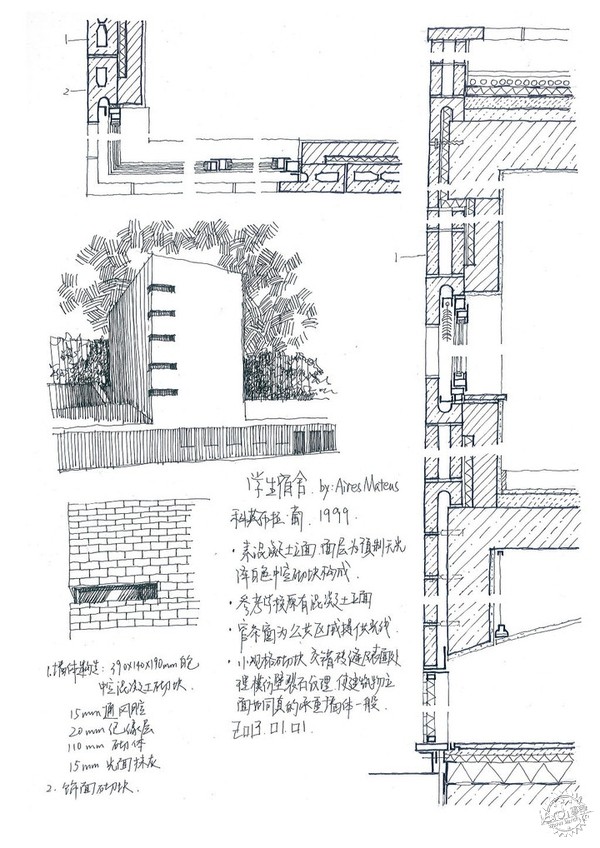 1
2
1
学生宿舍. by: Aires Mateus
科英布拉·葡. 1999.
· 素混凝土立面,面层为预制无光
泽白色中空砌块构成.
· 参考学校原有混凝土立面
· 窄条窗为公共区域提供光线.
· 小规格砌块交错砖缝及表面处
理模仿壁裂石纹理,使建筑物立
面如同真的承重墙体一般.
2013.01.01.
1. 墙体构造: 390x140x190mm的
中空混凝土砌块.
15mm 通风腔
20mm 绝缘层
110mm 砌体
15mm 光面抹灰
2. 饰面砌块.